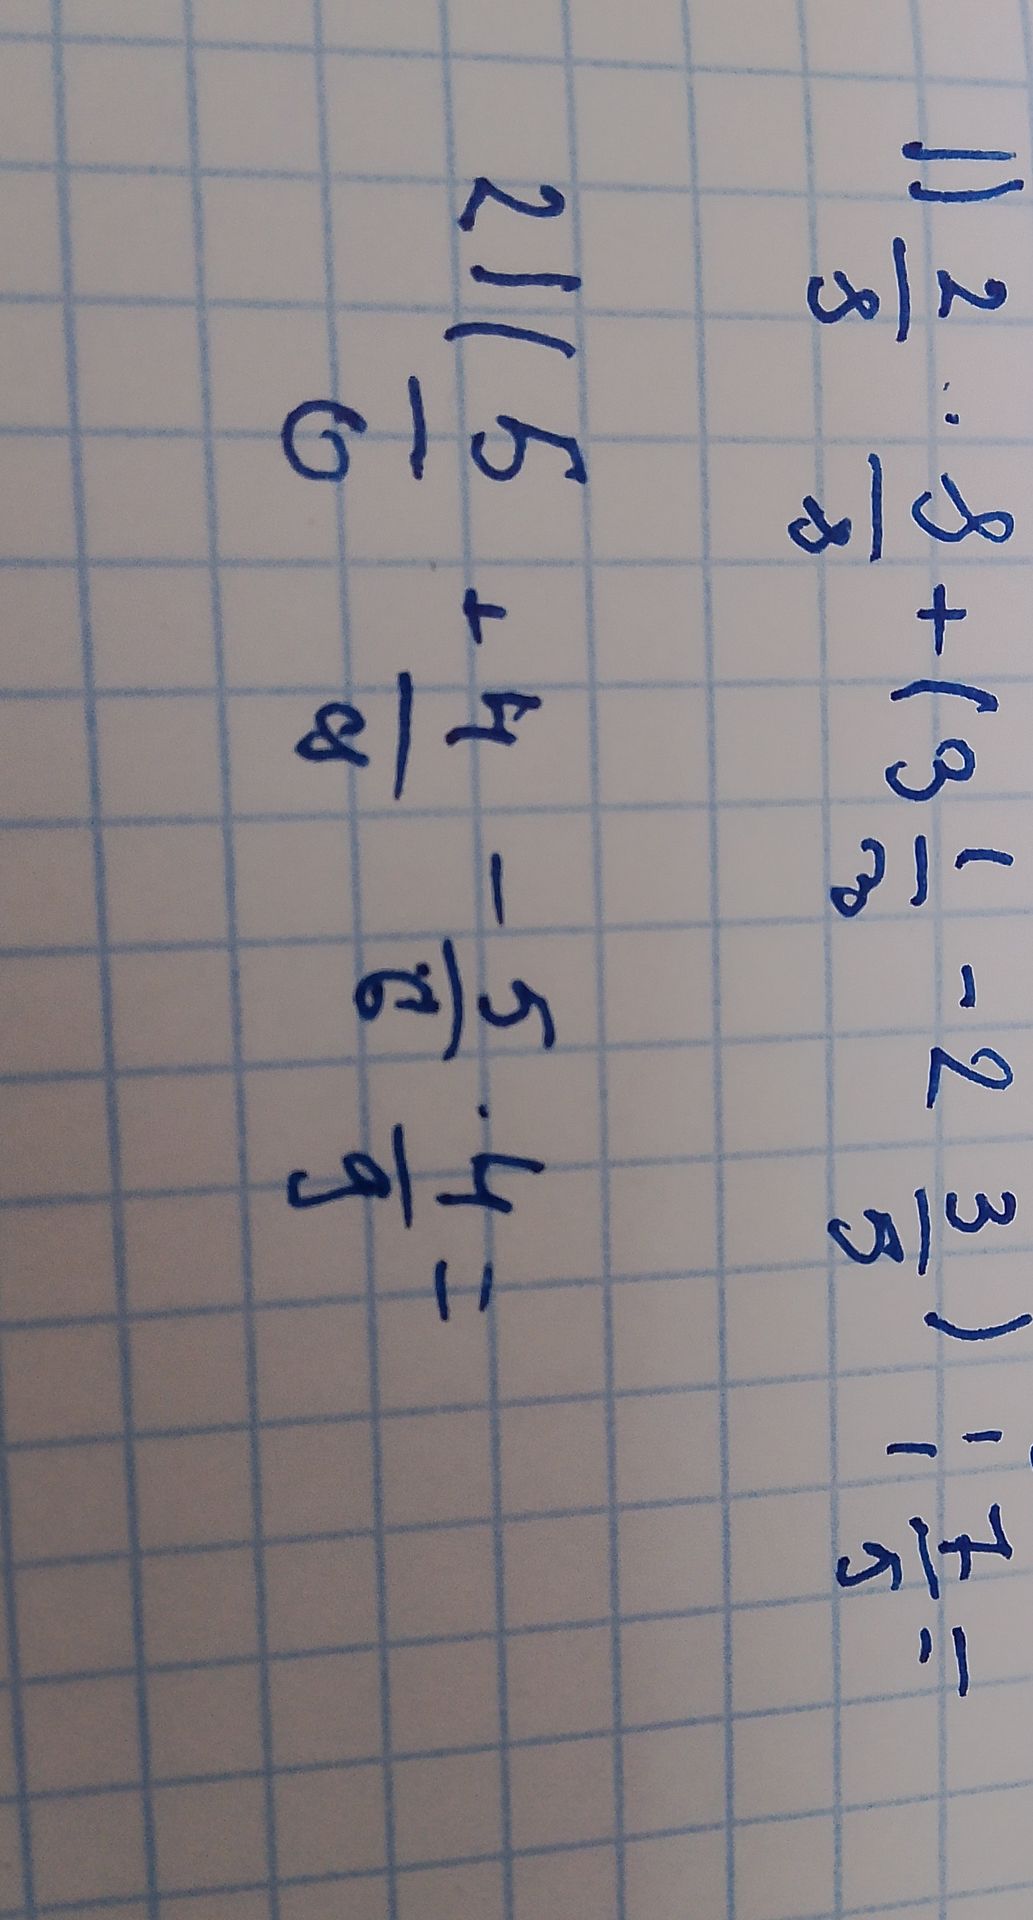 1) 2/8 : 8/8 + (3 1/8 - 2 3/5) : 7/5 =
2) (5/6 + 4/8 - 5/6 · 4/9 =